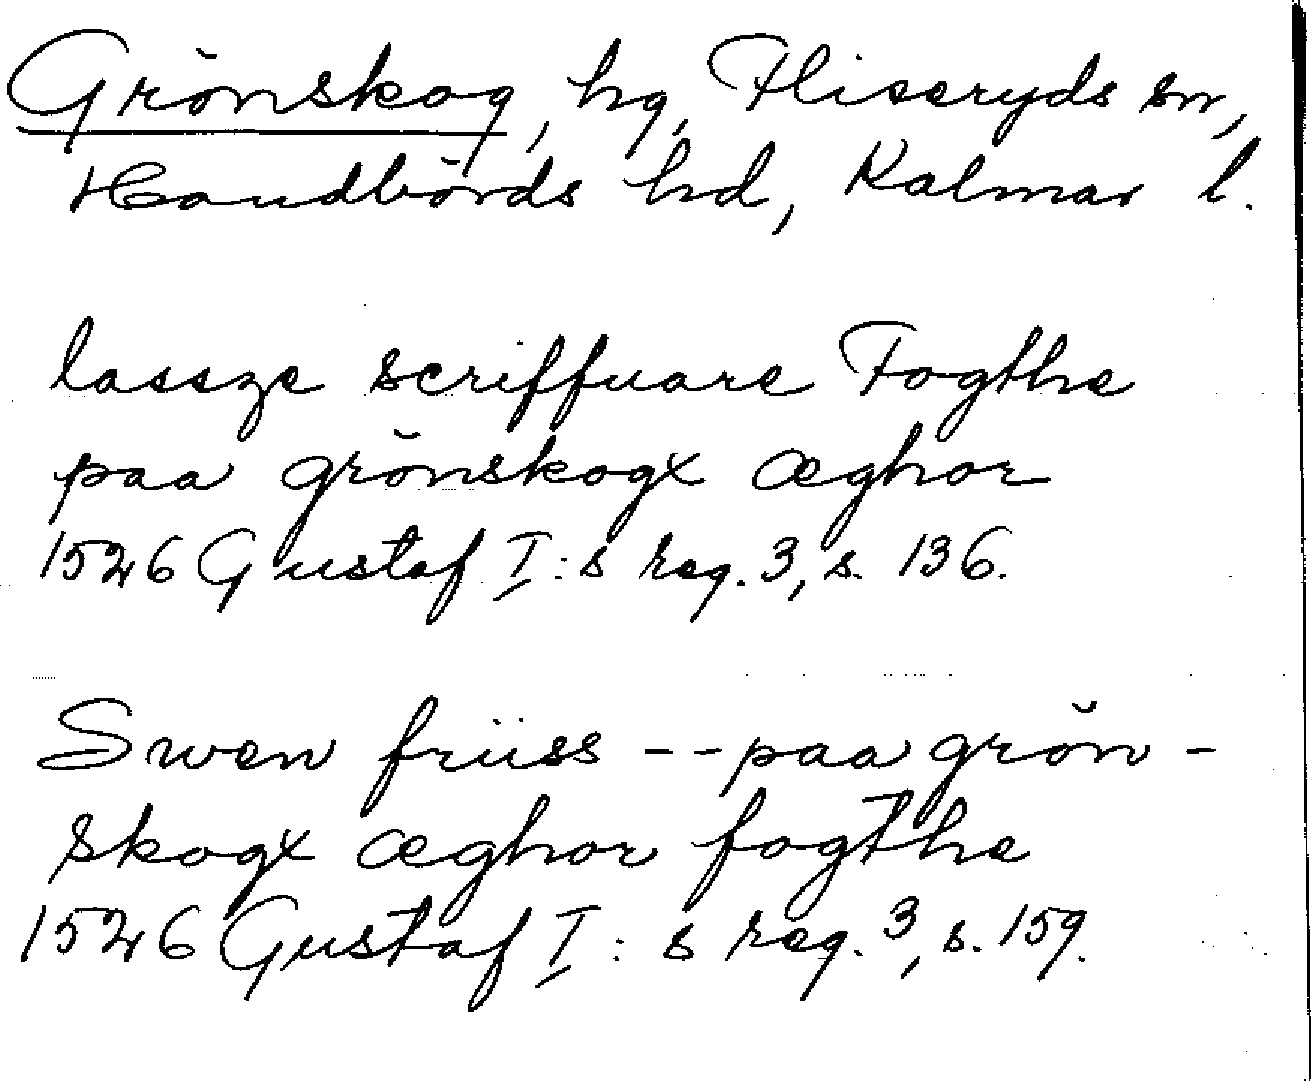 Grönskog, hg, Fliseryds sn,
Handbörds hd, Kalmar l.
lassze scriffuare Fogthe
paa grönskogx æghor
1526 Gustaf I:s reg. 3, s. 136.
Swen friiss -- paa grön-
skogx æghor fogthe
1526 Gustaf I:s reg. 3, s. 159.